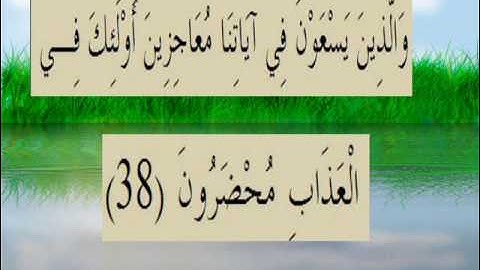 وَالَّذِينَ يَسْعَوْنَ فِي آيَاتِنَا مُعَاجِزِينَ أُوْلَئِكَ فِـــي
الْعَذَابِ مُحْضَرُونَ (38)